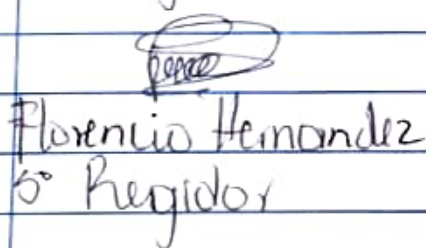 Florencio Hernandez
5° Regidor